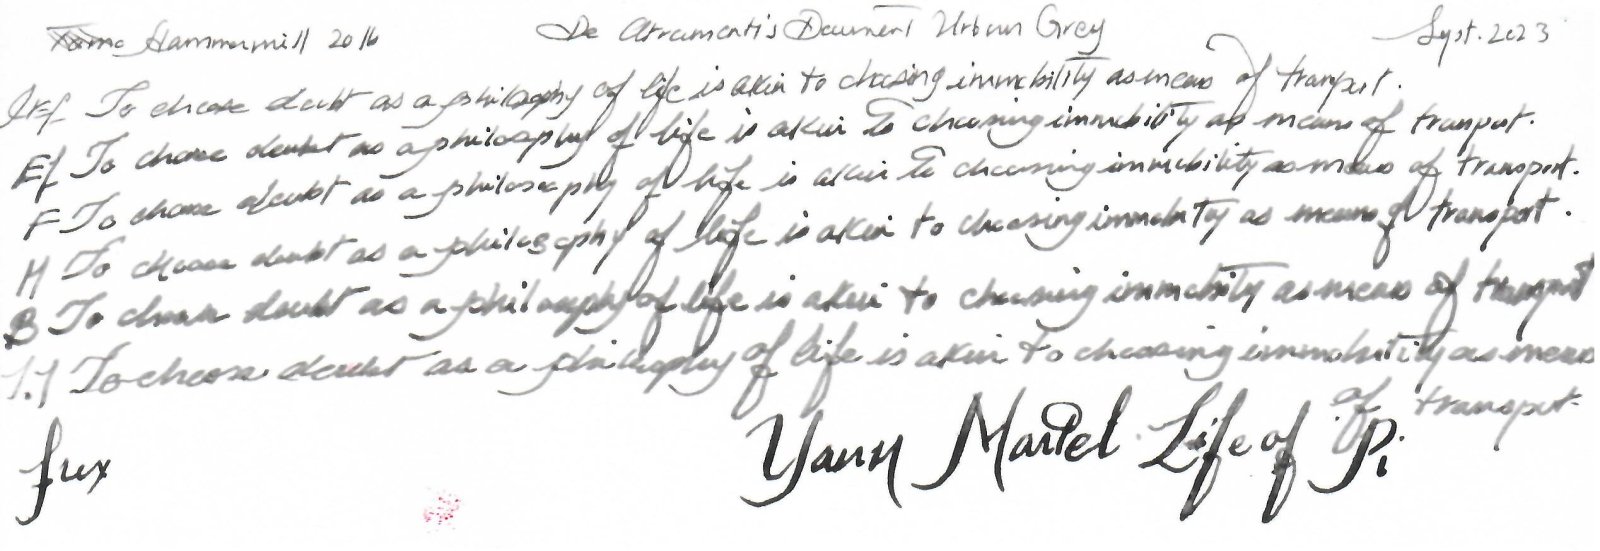 Hammermill 2016 De Atramentis Document Urban Grey Sept. 2023
Ef To choose doubt as a philosophy of life is akin to choosing immobility as means of transport.
Ef To choose doubt as a philosophy of life is akin to choosing immobility as means of transport.
F To choose doubt as a philosophy of life is akin to choosing immobility as means of transport.
M To choose doubt as a philosophy of life is akin to choosing immobility as means of transport.
B To choose doubt as a philosophy of life is akin to choosing immobility as means of transport
1.1 To choose doubt as a philosophy of life is akin to choosing immobility as means
of transport.
Yann Martel. Life of Pi